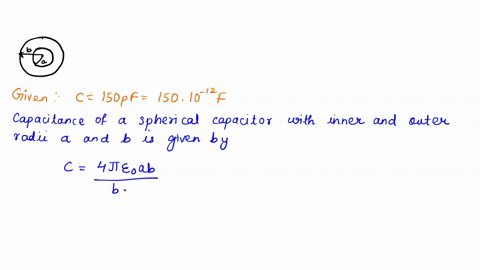 b
a
Given :- C = 150pF = 150 . 10^-12 F
Capacitance of a spherical capacitor with inner and outer
radii a and b is given by
C = 4πε₀ab
b .